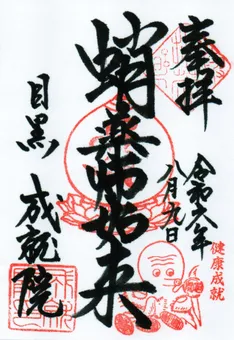 奉拝
令和六年
八月九日
蛸薬師如来
目黒
成就院
健康成就